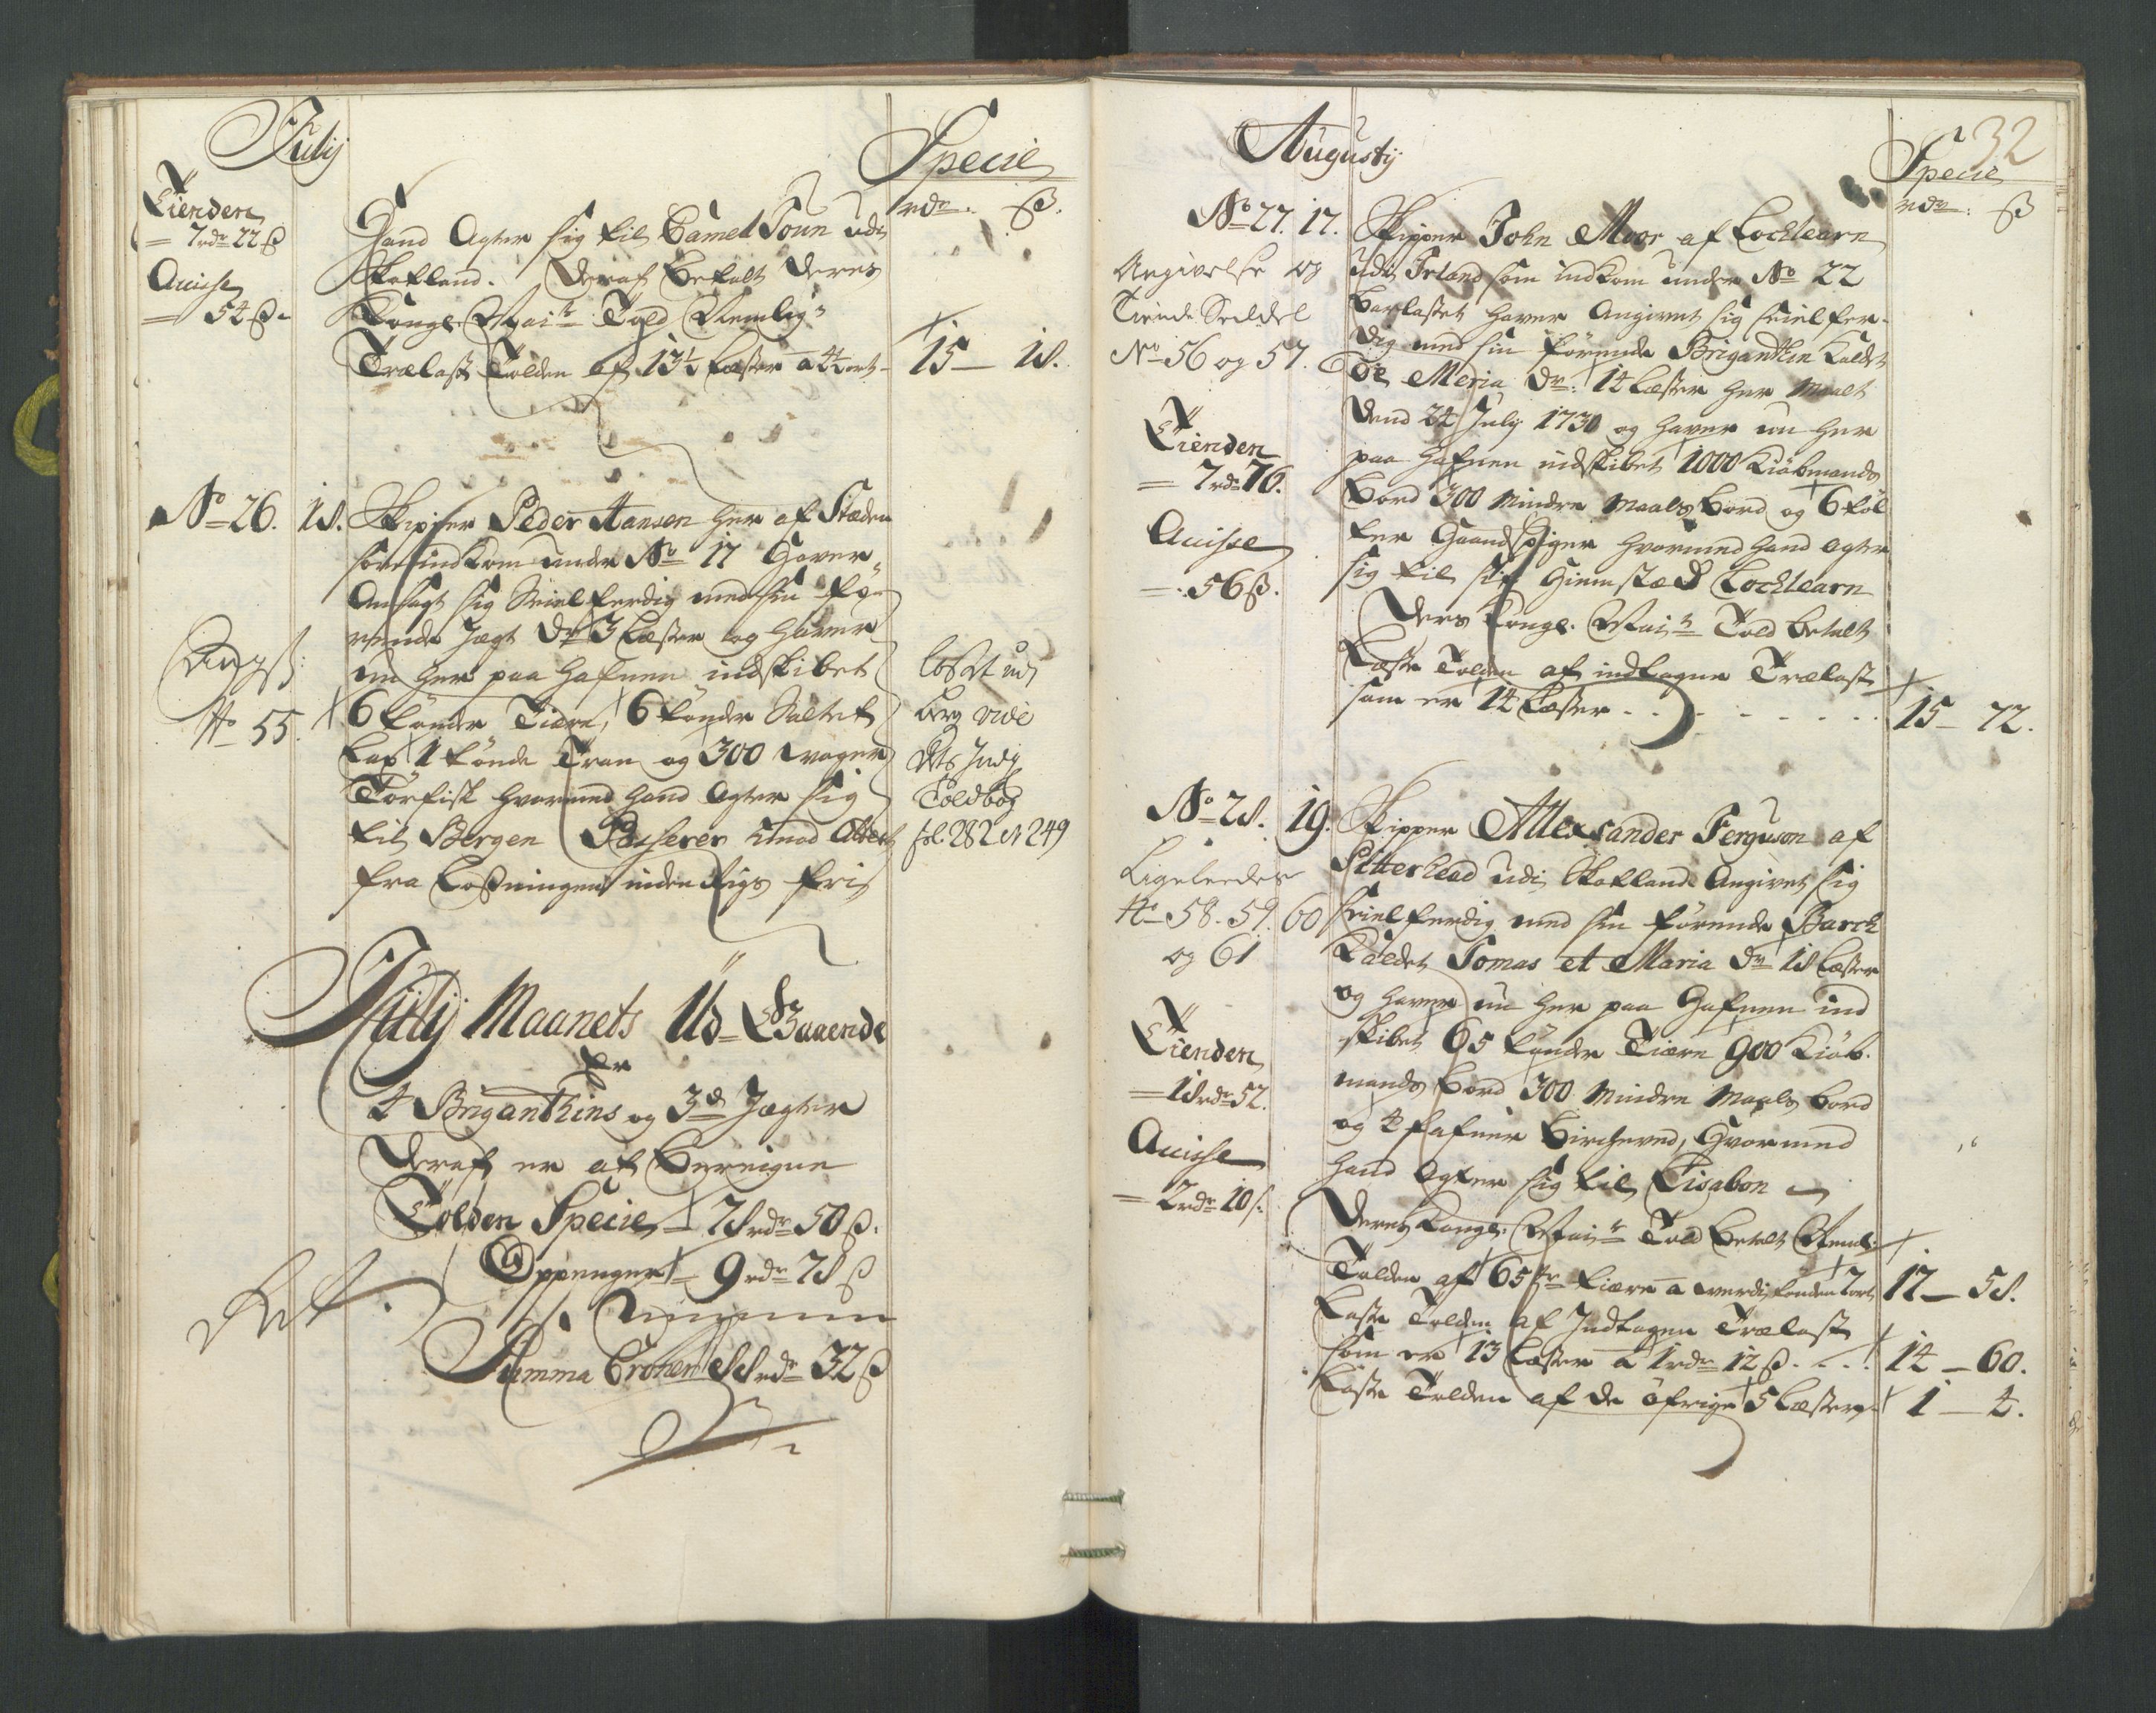 Julij
Specie
rdr. ß.
Tienden
= 7 rdr 22 ß
Acisse
= 54 ß.
Hand Agter sig til Camel Toun udi
Skotland. Deraf betalt Deres
Kongl. May.ts Told Nemlig:
Trælast Tolden af 13½ Læster a 4½ ort
15 - 18.
No 26. 18. Skipper Peder Hansen her af Stæden
som indkom under No 17 Haver
Ansagt sig Seilferdig med sin fø-
rende Jagt Dr. 3 Læster og haver
nu her paa Hafnen indskibet
6 tönder Tiære, 6 tönder Saltet
Lax 1 tönde Tran og 300 woger
Törfisk hvormed hand Agter sig
til Bergen Passerer imod Attest
fra Loßningen inden Rigs fri
Angß:
No 55.
Loßet udj
berg vide
Dets Indg
Toldbog
fol. 282 et 249
Julij Maanets Ud-Gaaende
er
4 Briganthins og 3de Jegter
Deraf er at bereigne
Tolden Specie - 78 rdr 50 ß.
Oppenger - 9 rdr 78 ß
Summa Croner 88 rdr 32 ß
32
Augustij
Specie
rdr: ß
No 27. 17. Skipper John Moor af Lochlearn
udi Irland som indkom under No 22
barlastet haver Angivet sig seilfer-
dig med sin förende Briganthin Kaldet
De Meria Dr: 14 Læster her Maalt
dend 24 July 1730 og haver nu her
paa Hafnen indskibet 1000 Kiöbmands
bord 300 Mindre Maals bord og 6 töl
ter Haandspiger hvormed hand agter
sig til sit Hiemstæd Lochlearn
Ders Kongl. May.ts Told betalt
Læste Tolden af indtagne Trælast
som er 14 Læster . . . . . . .
15 - 72.
Angivelse og
Tiende Seddel
No 56 og 57.
Tienden
= 7 rdr 76.
Acisse
= 56 ß.
No 28. 19. Skipper Allexsander Ferguson af
Pitterhead udi Skotland Angivet sig
seilferdig med sin förende Barck
Kaldet Tomas et Maria Dr 18 Læster
og haver nu her paa Hafnen ind
skibet 65 tönder Tiære 900 Kiöb.
mands bord 300 Mindre Maals bord
og 4 fafner Bircheved, Hvormed
hand Agter sig til Lisabon
Deres Kongl. May.ts Told betalt Neml:
Tolden af 65 tr tiære a werdi tönden 7 ort
17 - 58.
Læste Tolden af Indtagen Trælast
som er 13 Læster a 1 rdr 12 ß. . . .
14 - 60.
Læste Tolden af de öfrige 5 Læster
1 - 4.
Ligeleedes
No 58. 59. 60
og 61
Tienden
= 18 rdr 52.
Acisse
= 2 rdr 10 ß.